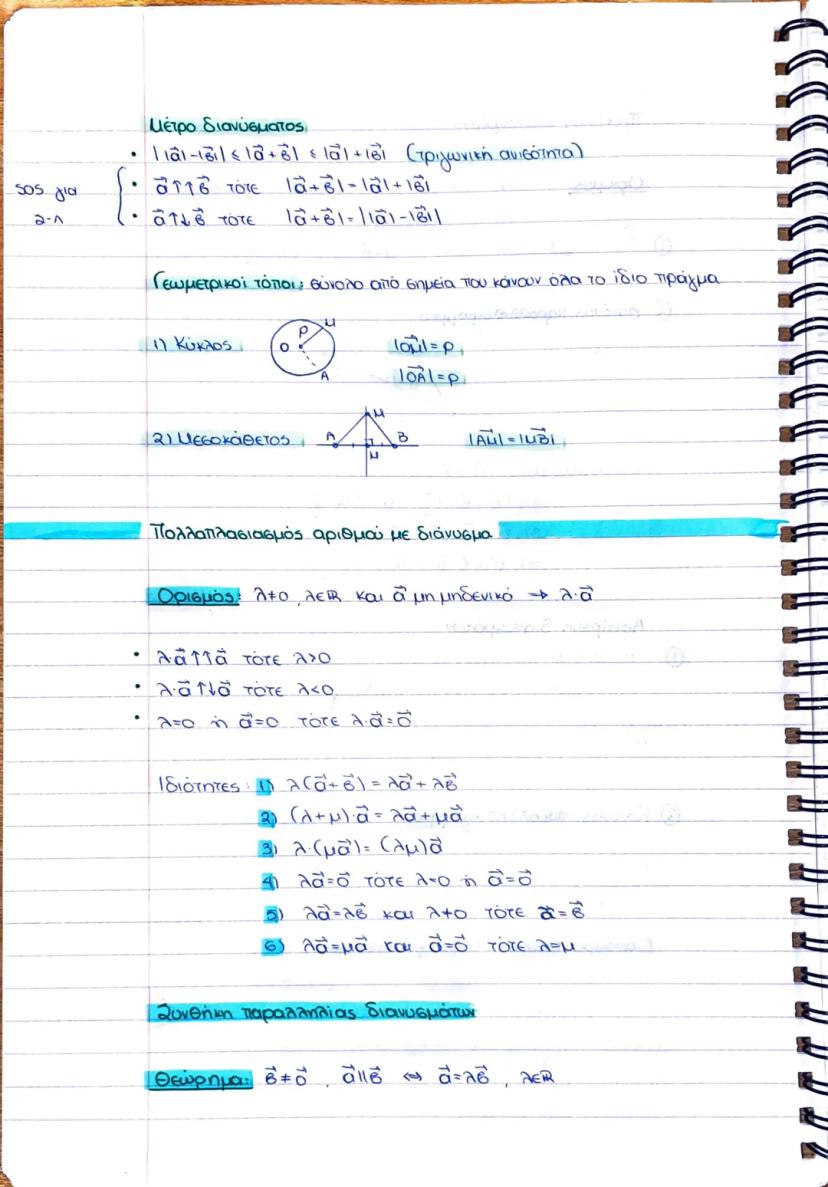 Μέτρο διανύσματος
• ||α⃗|-|β⃗|| ≤ |α⃗+β⃗| ≤ |α⃗|+|β⃗| (τριγωνική ανισότητα)
SOS για Σ-Λ
• α⃗↑↑β⃗ τότε |α⃗+β⃗|=|α⃗|+|β⃗|
• α⃗↑↓β⃗ τότε |α⃗+β⃗|=||α⃗|-|β⃗||
Γεωμετρικοί τόποι: σύνολο από σημεία που κάνουν όλα το ίδιο πράγμα
1) Κύκλος Ο ρ Μ Α |ΟΜ⃗|=ρ
|ΟΑ⃗|=ρ
2) Μεσοκάθετος Α Μ Β Μ |ΑΜ⃗|=|ΜΒ⃗|
Πολλαπλασιασμός αριθμού με διάνυσμα
Ορισμός: λ≠0, λ∈ℝ και α⃗ μη μηδενικό → λ·α⃗
• λ·α⃗↑↑α⃗ τότε λ>0
• λ·α⃗↑↓α⃗ τότε λ<0
• λ=0 ή α⃗=0 τότε λ·α⃗=0⃗
Ιδιότητες: 1) λ(α⃗+β⃗)=λα⃗+λβ⃗
2) (λ+μ)·α⃗=λα⃗+μα⃗
3) λ·(μα⃗)=(λμ)α⃗
4) λα⃗=0⃗ τότε λ=0 ή α⃗=0⃗
5) λα⃗=λβ⃗ και λ≠0 τότε α⃗=β⃗
6) λα⃗=μα⃗ και α⃗=0⃗ τότε λ=μ
Συνθήκη παραλληλίας διανυσμάτων
Θεώρημα: β⃗≠0⃗, α⃗||β⃗ ⇔ α⃗=λβ⃗, λ∈ℝ